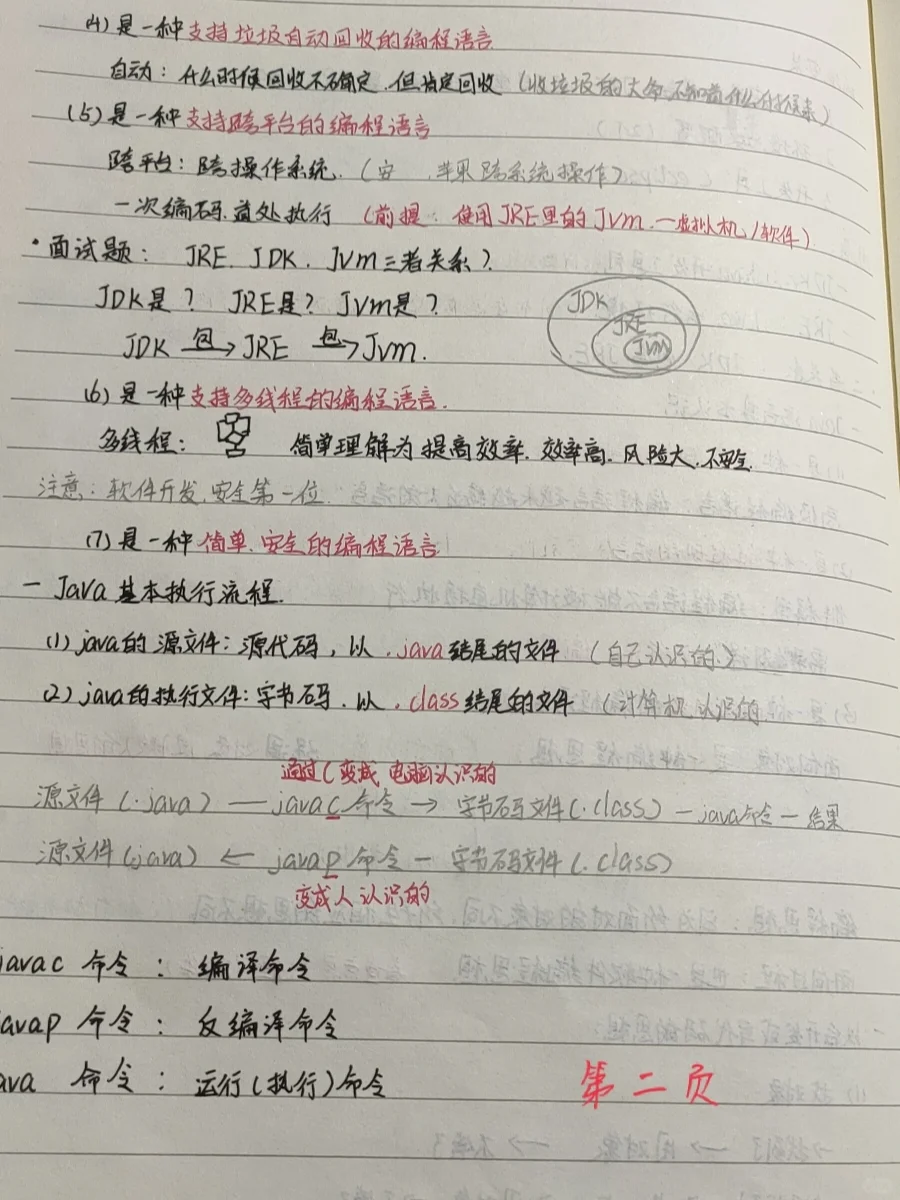 (4) 是一种支持垃圾自动回收的编程语言
自动：什么时候回收不确定，但肯定回收（收垃圾的大爷，不知道什么时候来）
(5) 是一种支持跨平台的编程语言
跨平台：跨操作系统.（安 , 苹果跨系统操作）
一次编码，到处执行（前提：使用JRE里的Jvm. 一虚拟机/软件）
·面试题： JRE. JDK. Jvm三者关系？
JDK是？ JRE是？ Jvm是？
JDK
JRE
Jvm
JDK 包→ JRE 包→ Jvm.
(6) 是一种支持多线程的编程语言.
多线程： 简单理解为提高效率. 效率高. 风险大. 不安全.
注意：软件开发,安全第一位.
(7) 是一种简单.安全的编程语言
一 Java 基本执行流程.
(1) java的源文件：源代码，以 .java结尾的文件 （自己认识的.）
(2) java的执行文件：字节码. 以 .class结尾的文件 （计算机认识的
通过C变成 电脑认识的
源文件 (.java) — javac命令 → 字节码文件(.class) — java命令 — 结果
源文件(java) ← javap命令 — 字节码文件(.class)
变成人认识的
javac 命令 ： 编译命令
avap 命令 ： 反编译命令
ava 命令 ： 运行(执行)命令
第二页